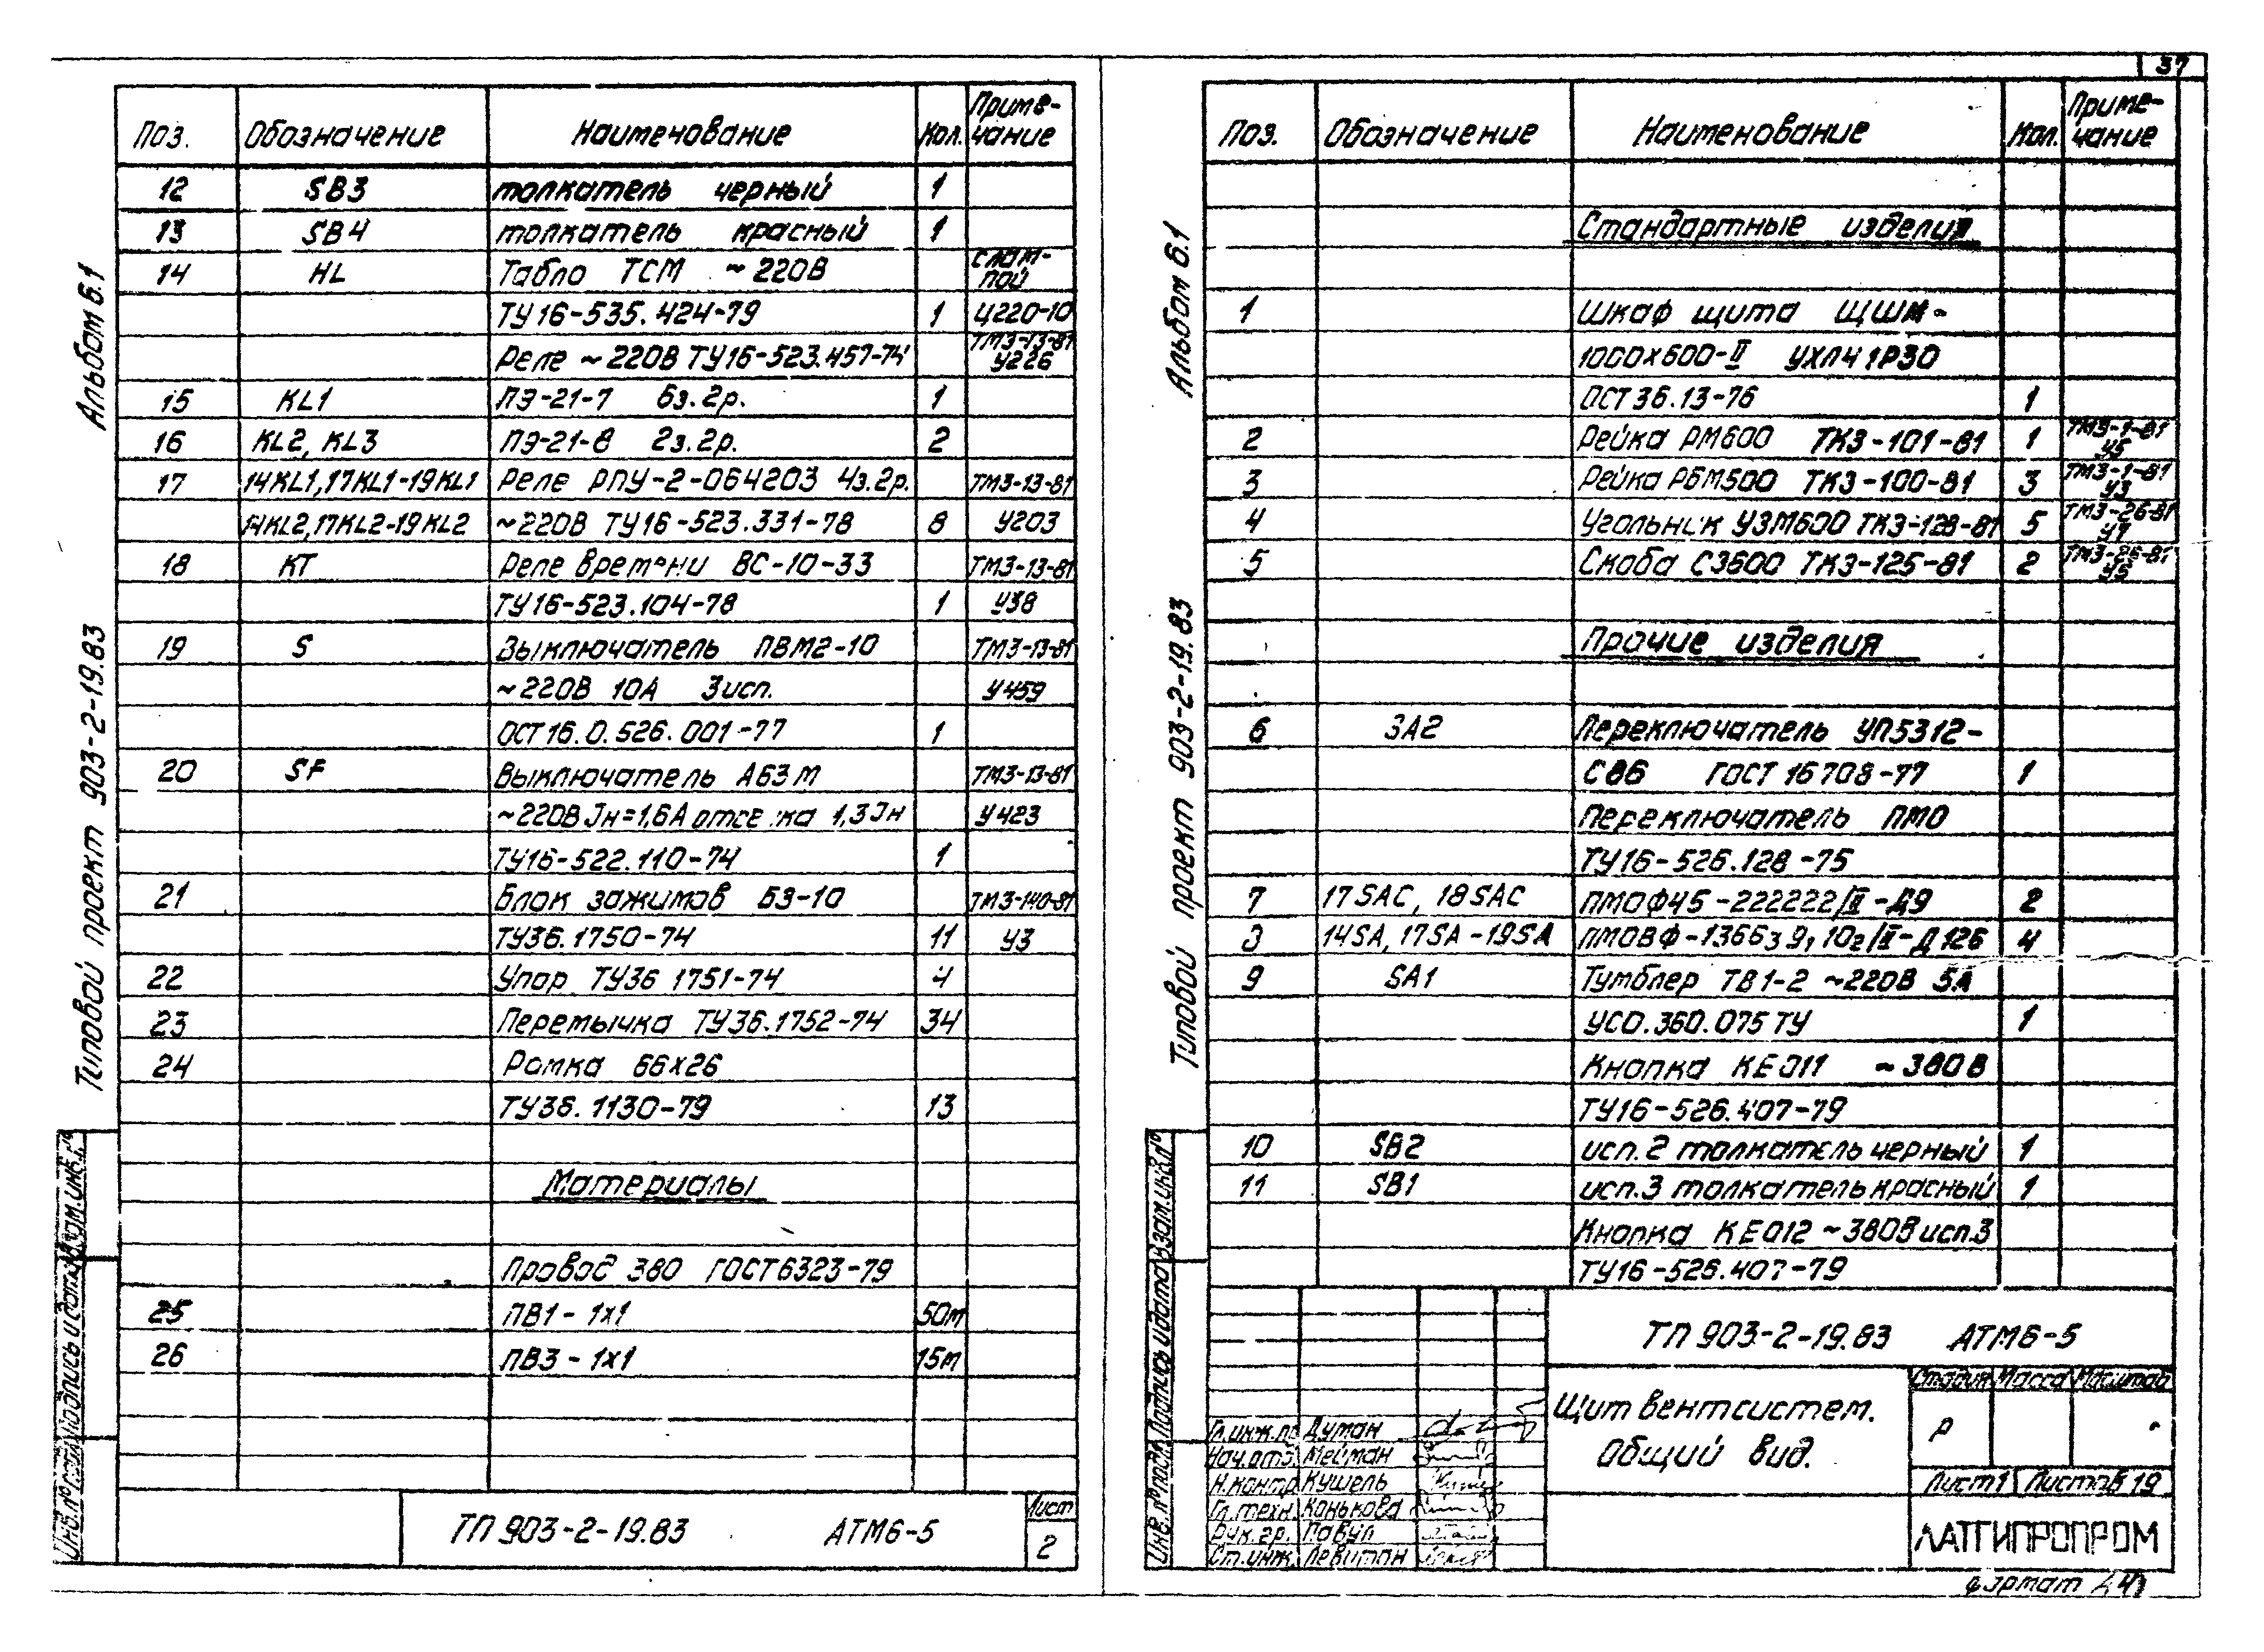 37
Альбом 6.1
Типовой проект 903-2-19.83
Поз. Обозначение Наименование Кол. Приме-чание
12 SB3 толкатель черный 1
13 SB4 толкатель красный 1
14 HL Табло ТСМ ~220В с лам-пой
ТУ16-535.424-79 1 Ц220-10
Реле ~220В ТУ16-523.457-74 ТМ3-13-81 У226
15 KL1 ПЭ-21-7 6з.2р. 1
16 KL2, KL3 ПЭ-21-8 2з.2р. 2
17 14KL1,17KL1-19KL1 Реле РПУ-2-064203 4з.2р. ТМ3-13-81
14KL2,17KL2-19KL2 ~220В ТУ16-523.331-78 8 У203
18 KT Реле времени ВС-10-33 ТМ3-13-81
ТУ16-523.104-78 1 У38
19 S Выключатель ПВМ2-10 ТМ3-13-81
~220В 10А 3исп. У459
ОСТ16.0.526.001-77 1
20 SF Выключатель А63М ТМ3-13-81
~220В Jн=1,6А отсечка 1,3Jн У423
ТУ16-522.110-74 1
21 Блок зажимов БЗ-10 ТМ3-140-81
ТУ36.1750-74 11 У3
22 Упор ТУ36 1751-74 4
23 Перемычка ТУ36.1752-74 34
24 Рамка 66х26
ТУ36.1130-79 13
Материалы
Провод 380 ГОСТ6323-79
25 ПВ1-1х1 50м
26 ПВ3-1х1 15м
Инв.№подл. Подпись и дата Взам.инв.№
ТП 903-2-19.83 АТМ6-5 Лист
2
Альбом 6.1
Типовой проект 903-2-19.83
Поз. Обозначение Наименование Кол. Приме-чание
Стандартные изделия
1 Шкаф щита ЩШМ-
1000х600-II УХЛ4 1Р30
ОСТ36.13-76 1
2 Рейка РМ600 ТК3-101-81 1 ТМ3-1-81 У5
3 Рейка РБМ500 ТК3-100-81 3 ТМ3-1-81 У3
4 Угольник УЗМ600 ТК3-128-81 5 ТМ3-26-81 У7
5 Скоба С3600 ТК3-125-81 2 ТМ3-26-81 У5
Прочие изделия
6 SA2 Переключатель УП5312-
С86 ГОСТ 16708-77 1
Переключатель ПМО
ТУ16-526.128-75
7 17SAC, 18SAC ПМОФ45-222222/II-Д9 2
14SA, 17SA-19SA ПМОВФ-1366з9,10г/II-Д126 4
9 SA1 Тумблер ТВ1-2 ~220В 5А
УСО.360.075ТУ 1
Кнопка КЕ011 ~380В
ТУ16-526.407-79
10 SB2 исп.2 толкатель черный 1
11 SB1 исп.3 толкатель красный 1
Кнопка КЕ012 ~380В исп.3
ТУ16-526.407-79
Инв.№подл. Подпись и дата Взам.инв.№
ТП 903-2-19.83 АТМ6-5
Щит вентсистем.
Общий вид.
Стадия Масса Масштаб
Р -
Лист1 Листов 19
ЛАТГИПРОПРОМ
Гл.инж.пр Думан
Нач.отд. Мейман
Н.контр. Кушель
Гл.техн. Конькова
Рук.гр. Павул
Ст.инж. Левитан
формат А4